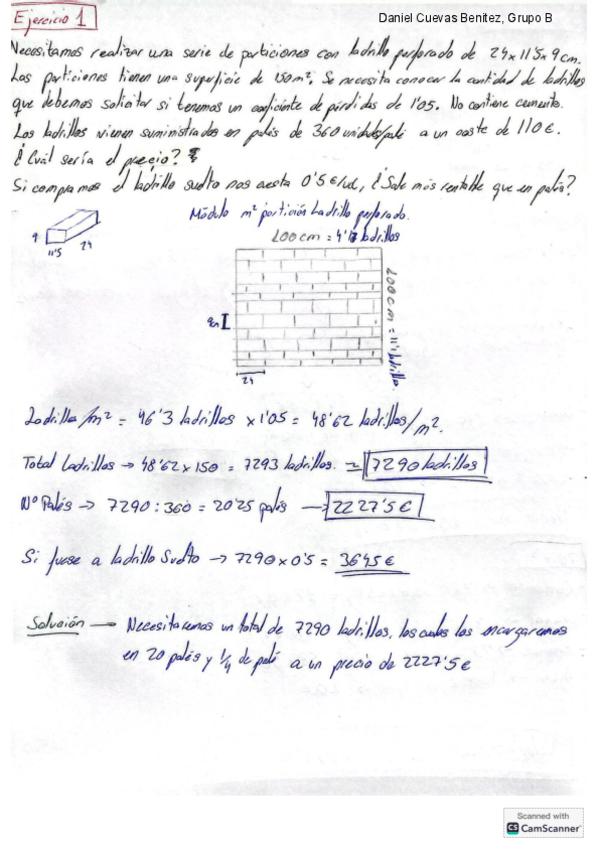 Ejercicio 1
Daniel Cuevas Benitez, Grupo B
Necesitamos realizar una serie de particiones con ladrillo perforado de 24x11'5x9cm.
Las particiones tienen una superficie de 150m². Se necesita conocer la cantidad de ladrillos
que debemos solicitar si tenemos un coeficiente de pérdidas de 1'05. No contiene cemento.
Los ladrillos vienen suministrados en palés de 360 unidads/palé a un coste de 110€.
¿Cuál sería el precio?
Si compramos el ladrillo suelto nos cuesta 0'5€/ud, ¿Sale más rentable que en palés?
Módulo m² partición Ladrillo perforado.
100cm = 4'17 ladrillos
9
11'5
24
100cm = 11'1 ladrillos
9cm
24
Ladrillos/m² = 46'3 ladrillos x1'05 = 48'62 ladrillos/m².
Total Ladrillos → 48'62x150 = 7293 ladrillos. = 7290 ladrillos
Nº Palés → 7290:360 = 20'25 palés → 2227'5€
Si fuese a ladrillo suelto → 7290x0'5 = 3645€
Solución → Necesitaremos un total de 7290 ladrillos, los cuales los encargaremos
en 20 palés y 1/4 de palé a un precio de 2227'5€
Scanned with
CS CamScanner